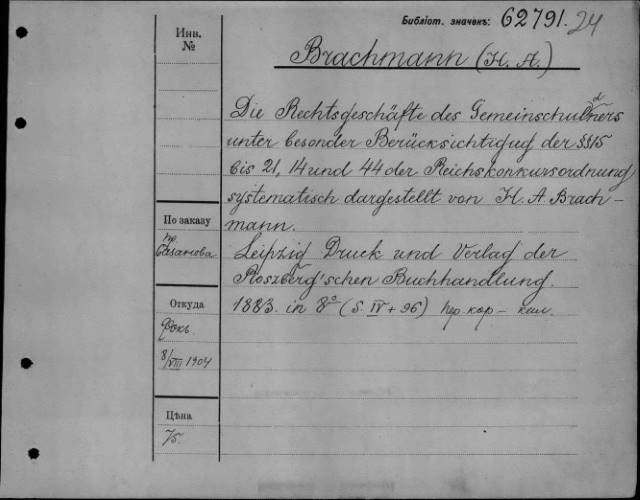 Библіот. значекъ: 62791. 24
Инв. №
Brachmann (H. A.)
Die Rechtsgeschäfte des Gemeinschuldners
unter besonder Berücksichtigug der §§15
bis 21, 14 und 44 der Reichskonkursordnung
systematisch dargestellt von H. A. Brach-
mann.
Leipzig Druck und Verlag der
Roszberg'schen Buchhandlung.
1883. in 8º (S. IV + 96) пер. кор – кал.
По заказу
пр.
Откуда
Фокъ
8/VIII 1904
Цѣна
75.